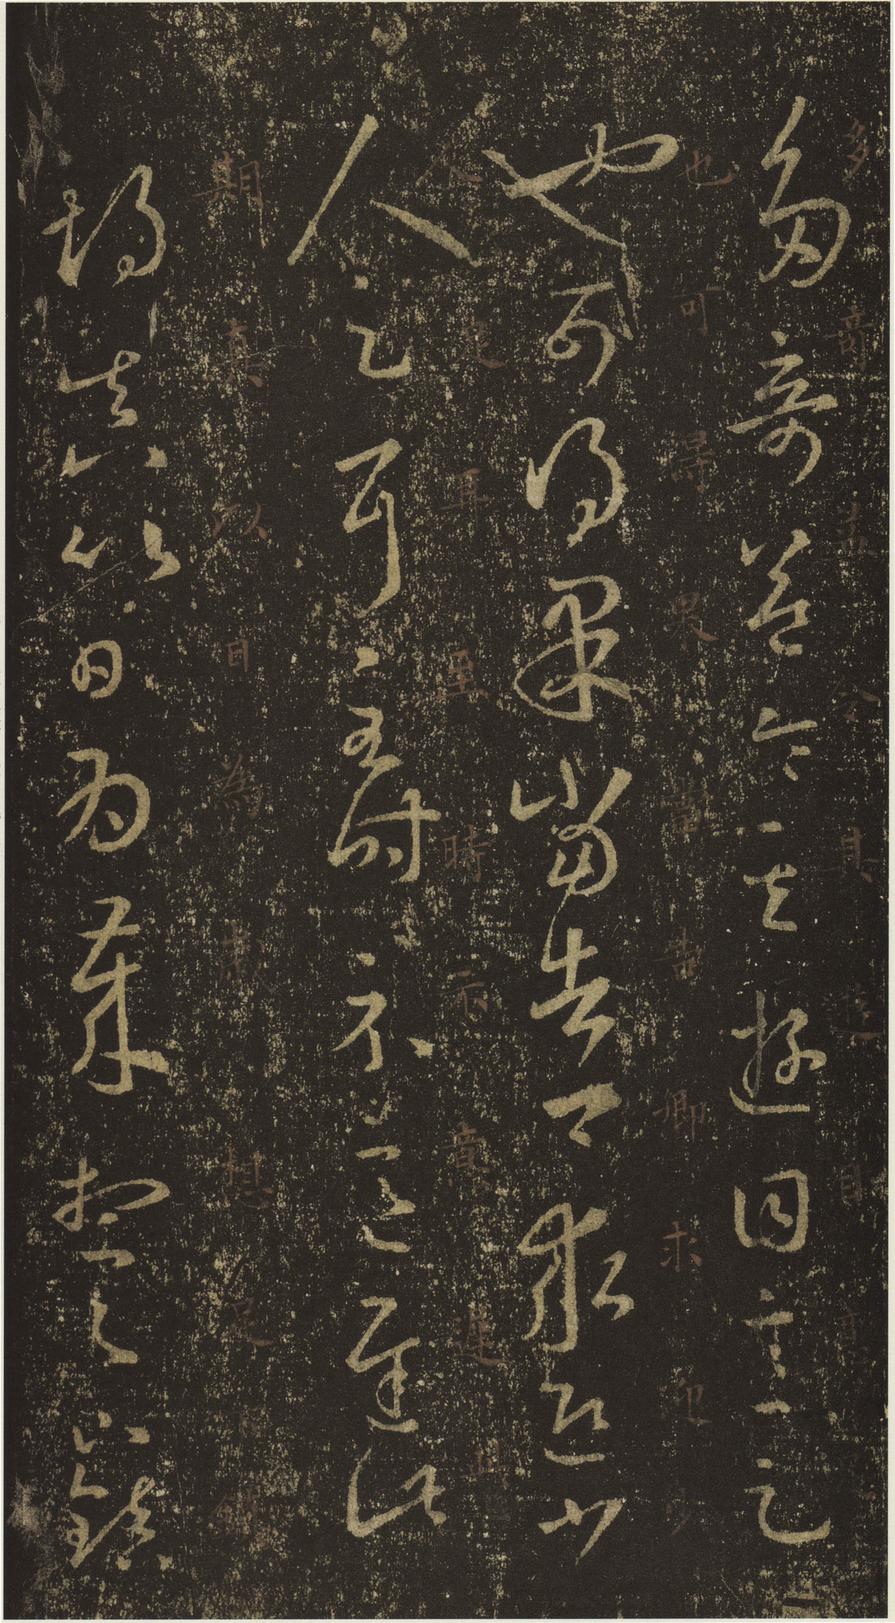 多奇益令其遊目意足
也可得果當告卿求迎少
人足耳至時示意遲此
期真以日為歲想足下鎮